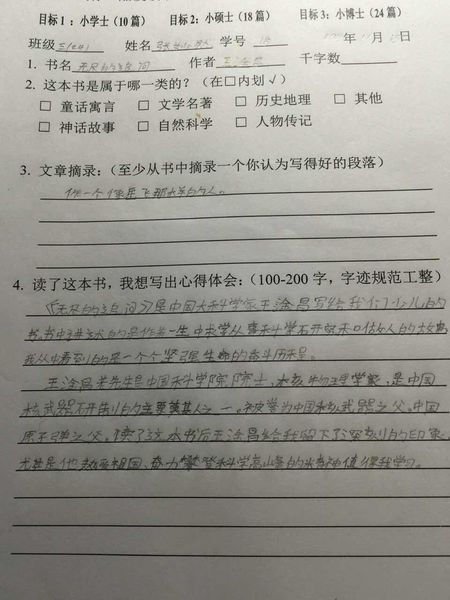 目标1：小学士（10篇） 目标2：小硕士（18篇） 目标3：小博士（24篇）
班级 姓名 学号 年 月
1. 书名 无尽的追问 作者 王淦昌 千字数
2. 这本书是属于哪一类的？（在□内划√）
□ 童话寓言 □ 文学名著 □ 历史地理 □ 其他
□ 神话故事 □ 自然科学 □ 人物传记
3. 文章摘录：（至少从书中摘录一个你认为写得好的段落）
作一个像 的人。
4. 读了这本书，我想写出心得体会：（100-200字，字迹规范工整）
《无尽的追问》是中国大科学家王淦昌写给我们少儿的
书，书中讲述的是作者一生中求学从事科学 和 人的故事
我从中看到的是一个个坚强生命的奋斗历程。
王淦昌 先生是中国科学院院士，核物理学家，是中国
核武器 的主要奠基人之一。被誉为中国核武器之父，中国
原子弹之父。读了这本书后王淦昌给我留下了深刻的印象，
尤其是他热爱祖国，奋力攀登科学高山峰的精神值得我学习。